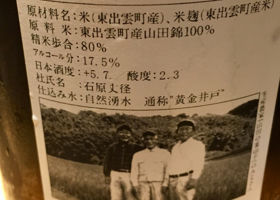 原材料名:米(東出雲町産)、米麹(東出雲町産米)
原 料 米:東出雲町産山田錦100%
精米歩合:80%
アルコール分:17.5%
日本酒度:+5.7 酸度:2.3
杜氏名 :石原丈径
仕込み水:自然湧水 通称"黄金井戸"